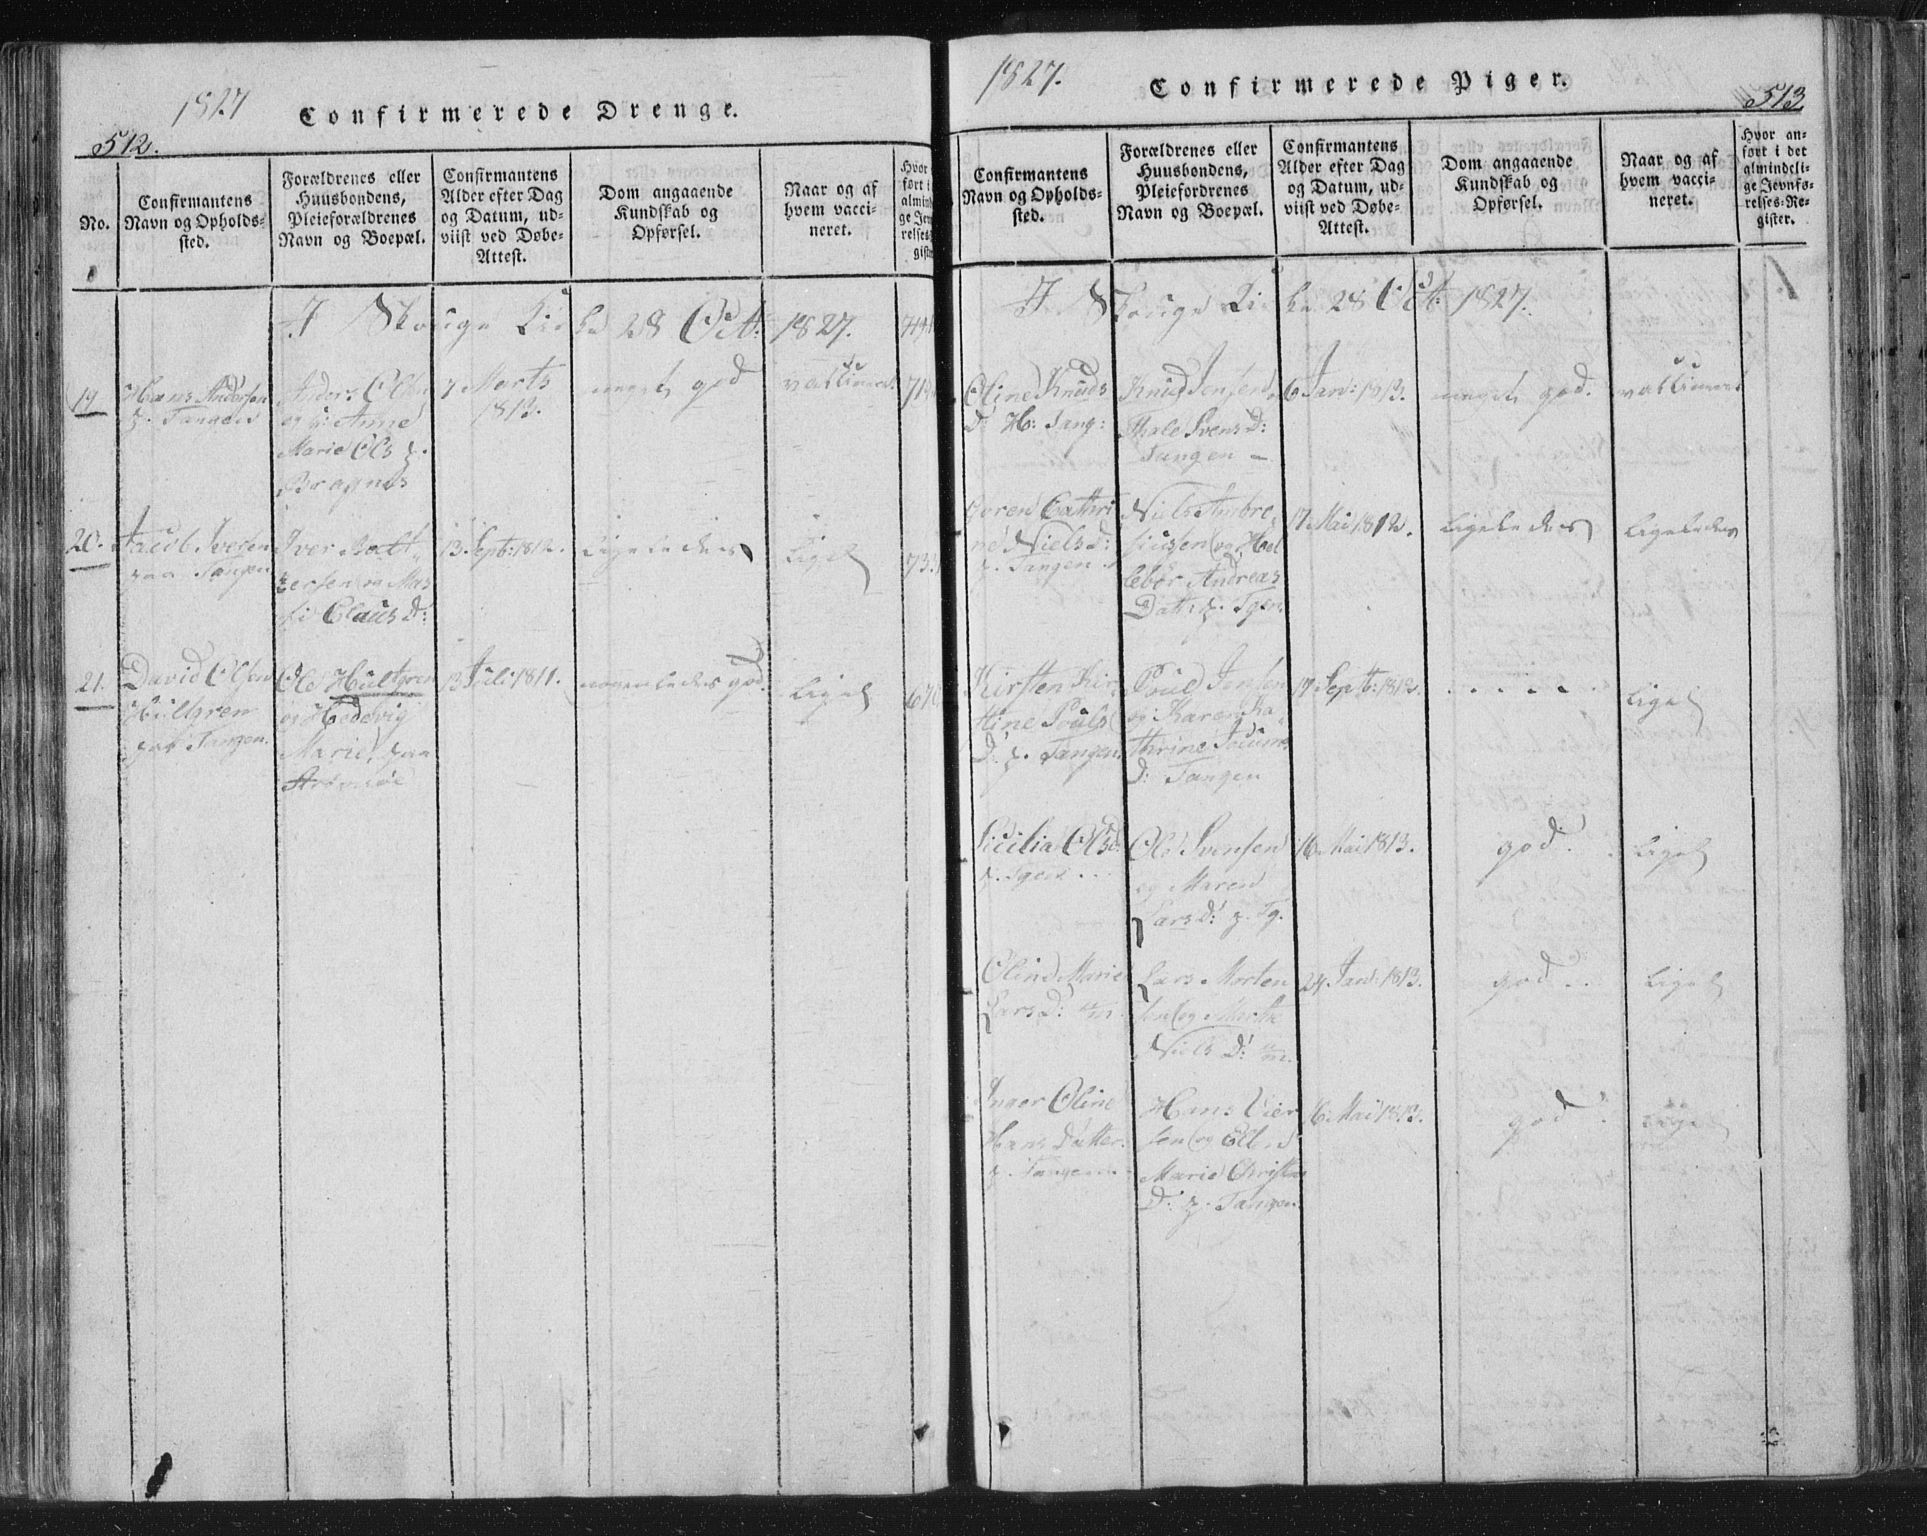 1827
Confirmerede Drenge.
512.
No.
Confirmantens
Navn og Opholds-
sted.
Forældrenes eller
Huusbondens,
Pleieforældrenes
Navn og Boepæl.
Confirmantens
Alder efter Dag
og Datum, ud-
viist ved Døbe-
Attest.
Dom angaaende
Kundskab og
Opførsel.
Naar og af
hvem vacci-
neret.
Hvor
ført i
almind
ge Jev
relses-
giste
I Skouge Kirke 28 Oct: 1827.
19
Hans Andersen
p. Tangen
Anders Ols
og Anne
Marie Ols
Bragnes
7 Marts
1813.
meget god
vaccineret
20.
Jacob Iversen
paa Tangen
Iver
og Mas
Claus D:
13. Sept: 1812.
ligeledes
ligel
21.
David Olsen
Hultgren
paa Tangen.
Ole Hultgren
og Hedevig
Marie, paa
Strømsøe
13 Juli 1811.
nogenledes god.
liget
1827.
Confirmerede Piger.
513
Confirmantens
Navn og Opholds-
sted.
Forældrenes eller
Huusbondens,
Pleiefordrenes
Navn og Boepæl.
Confirmantens
Alder efter Dag
og Datum, ud-
viist ved Døbe-
Attest.
Dom angaaende
Kundskab og
Opførsel.
Naar og af
hvem vacci-
neret.
Hvor an-
ført i det
almindeli-
ge Jevnfø-
relses-Re-
gister.
I Skouge Kirke 28 Oct: 1827.
Oline Knuds
D:
Knud Jensen
Thale Svens D:
Tangen
6 Jan: 1813.
meget god.
vaccineret
Goren Cathri
ne Niels D:
p. Tangen
Niels Ambro
siussen og
Andreas
Datt: p. Tgen.
17 Mai 1812.
ligeledes
ligeledes
Kirsten
Pouls
D: p. Tangen
Poul Jensen
og Karen Ka
thrine
D: Tangen
17 Sept: 1812.
. . . . .
liget
Cicilia Ols D:
p. Tgen ...
Ole Svensen
og Maren
Lars D: p. Tg.
16 Mai 1813.
god.
liget
Oline Marie
Lars D:
Lars Morten
sen og Marthe
Niels D:
24 Jan: 1813.
god ..
liget
Inger Oline
Hans Datter.
p. Tangen
Hans
sen og
Marie Christen
D: p. Tangen.
6. Mai 1813.
god
liget